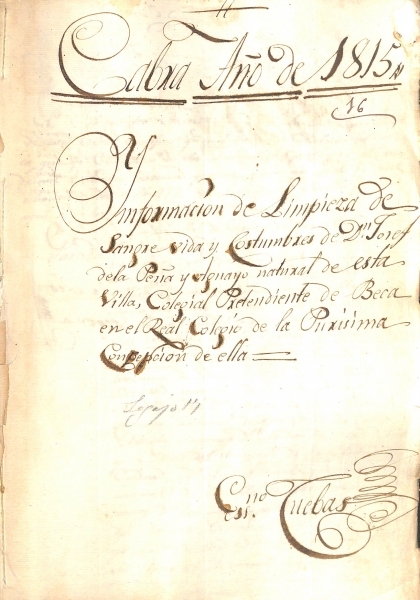 Cabra Año de 1815
16
Ynformacion de Limpieza de
Sangre vida y Costumbres de Dn. Josef
dela Peña y Aguayo natural de esta
Villa, Colegial Pretendiente de Beca
en el Real Colegio de la Purisima
Concepcion de ella
Legajo 14
Essno. Cuebas